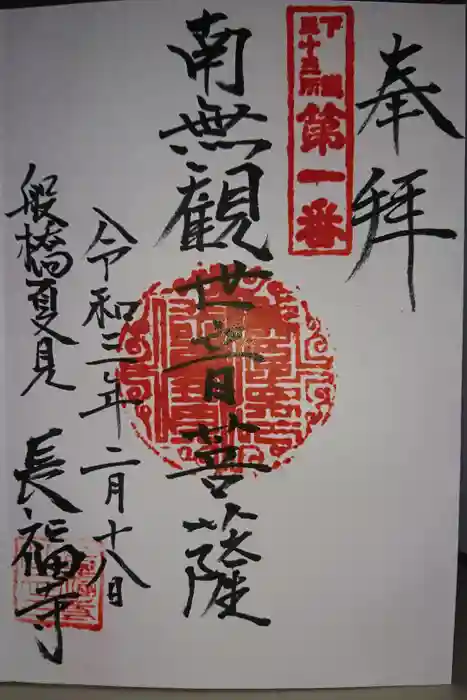 奉拝
下総
三十三所
第一番
南無観世音菩薩
令和三年二月十八日
般橋夏見
長福寺